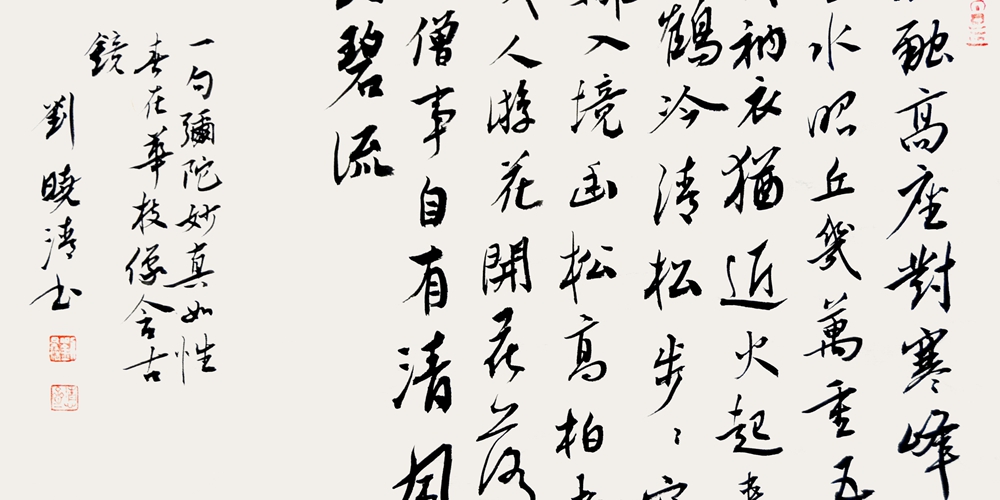 融高座對寒峰
水昭丘幾萬重五
衲衣猶近火起
鶴冷清松步々
入境幽松高柏
人游花開花落
僧事自有清風
碧流
一句彌陀妙真如性
春在華枝像含古
鏡
劉曉清书